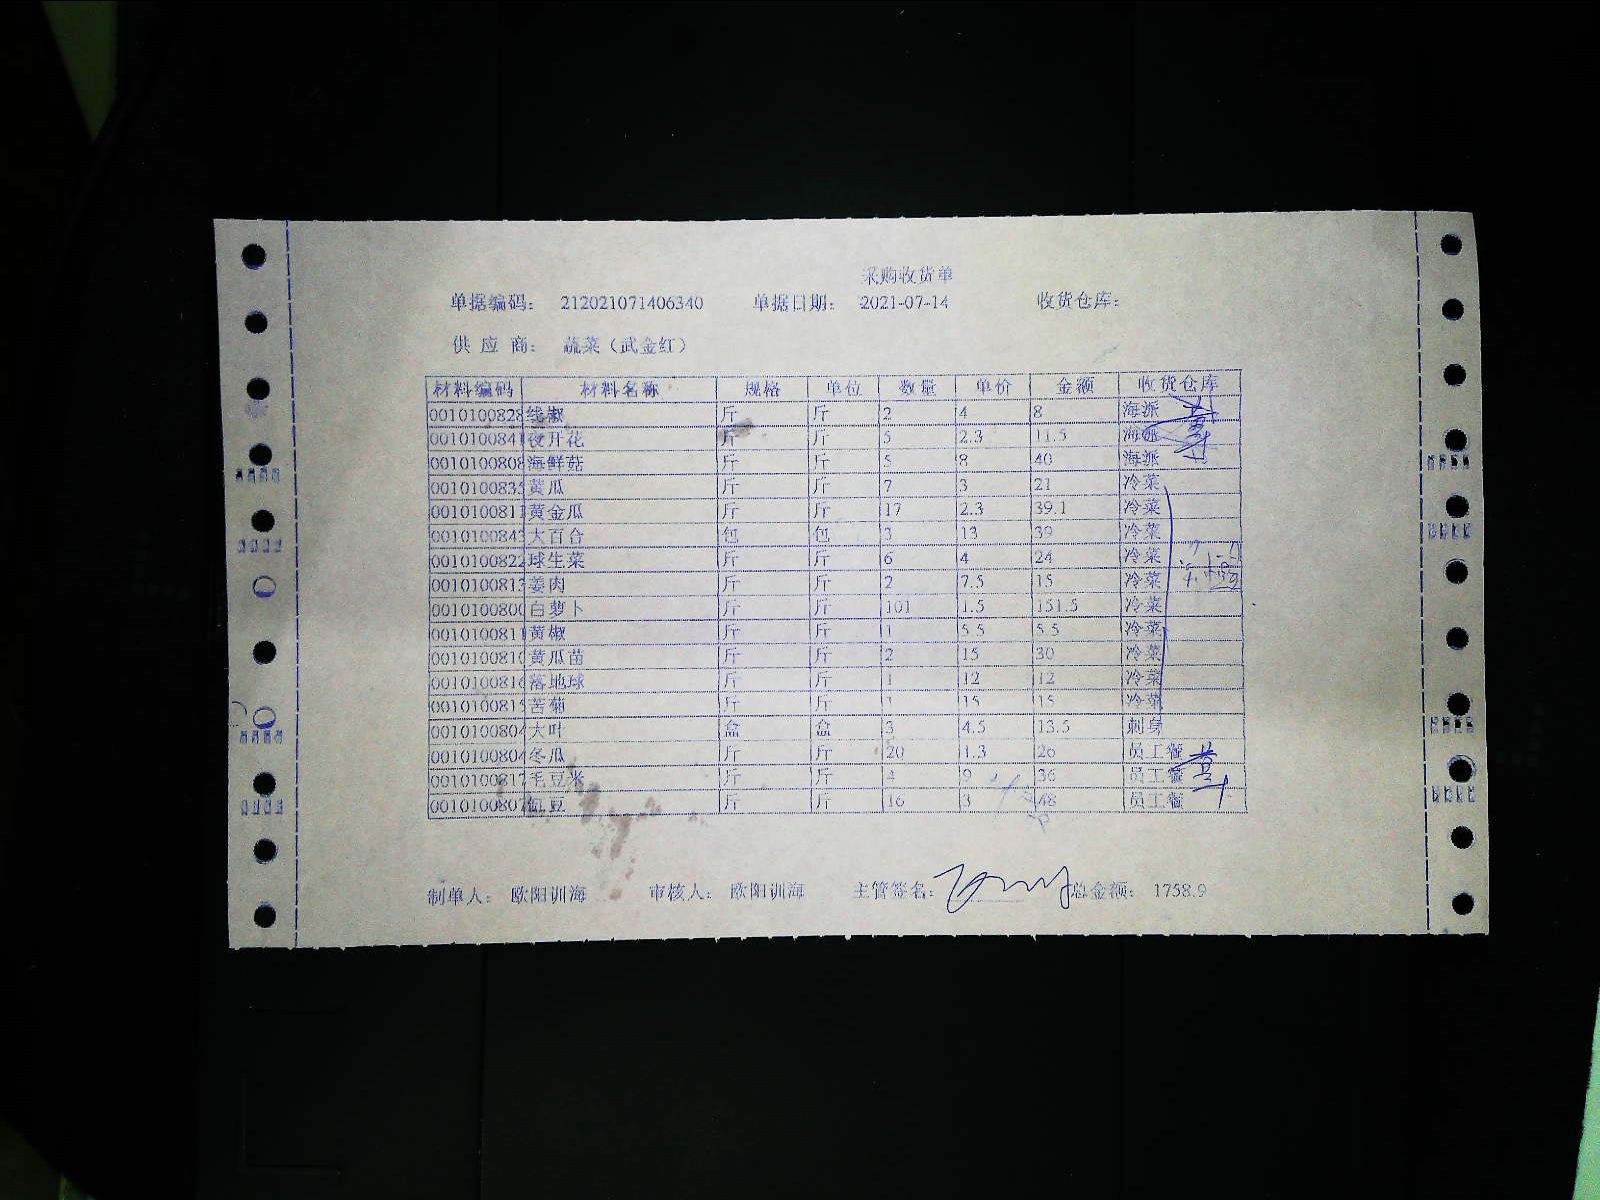 采购收货单
单据编码： 212021071406340 单据日期： 2021-07-14 收货仓库：
供 应 商： 蔬菜（武金红）
材料编码 材料名称 规格 单位 数量 单价 金额 收货仓库
0010100828 线椒 斤 斤 2 4 8 海派
001010084 夜开花 斤 斤 5 2.3 11.5 海派
0010100808 海鲜菇 斤 斤 5 8 40 海派
001010083 黄瓜 斤 斤 7 3 21 冷菜
001010081 黄金瓜 斤 斤 17 2.3 39.1 冷菜
001010084 大百合 包 包 3 13 39 冷菜
0010100822 球生菜 斤 斤 6 4 24 冷菜
001010081 姜肉 斤 斤 2 7.5 15 冷菜
001010080 白萝卜 斤 斤 101 1.5 151.5 冷菜
001010081 黄椒 斤 斤 1 5.5 5.5 冷菜
001010081 黄瓜苗 斤 斤 2 15 30 冷菜
001010081 落地球 斤 斤 1 12 12 冷菜
001010081 苦菊 斤 斤 1 15 15 冷菜
001010080 大叶 盒 盒 3 4.5 13.5 刺身
001010080 冬瓜 斤 斤 20 1.3 26 员工餐
001010081 毛豆米 斤 斤 4 9 36 员工餐
001010080 豇豆 斤 斤 16 3 48 员工餐
制单人： 欧阳训海 审核人： 欧阳训海 主管签名： 总金额： 1758.9